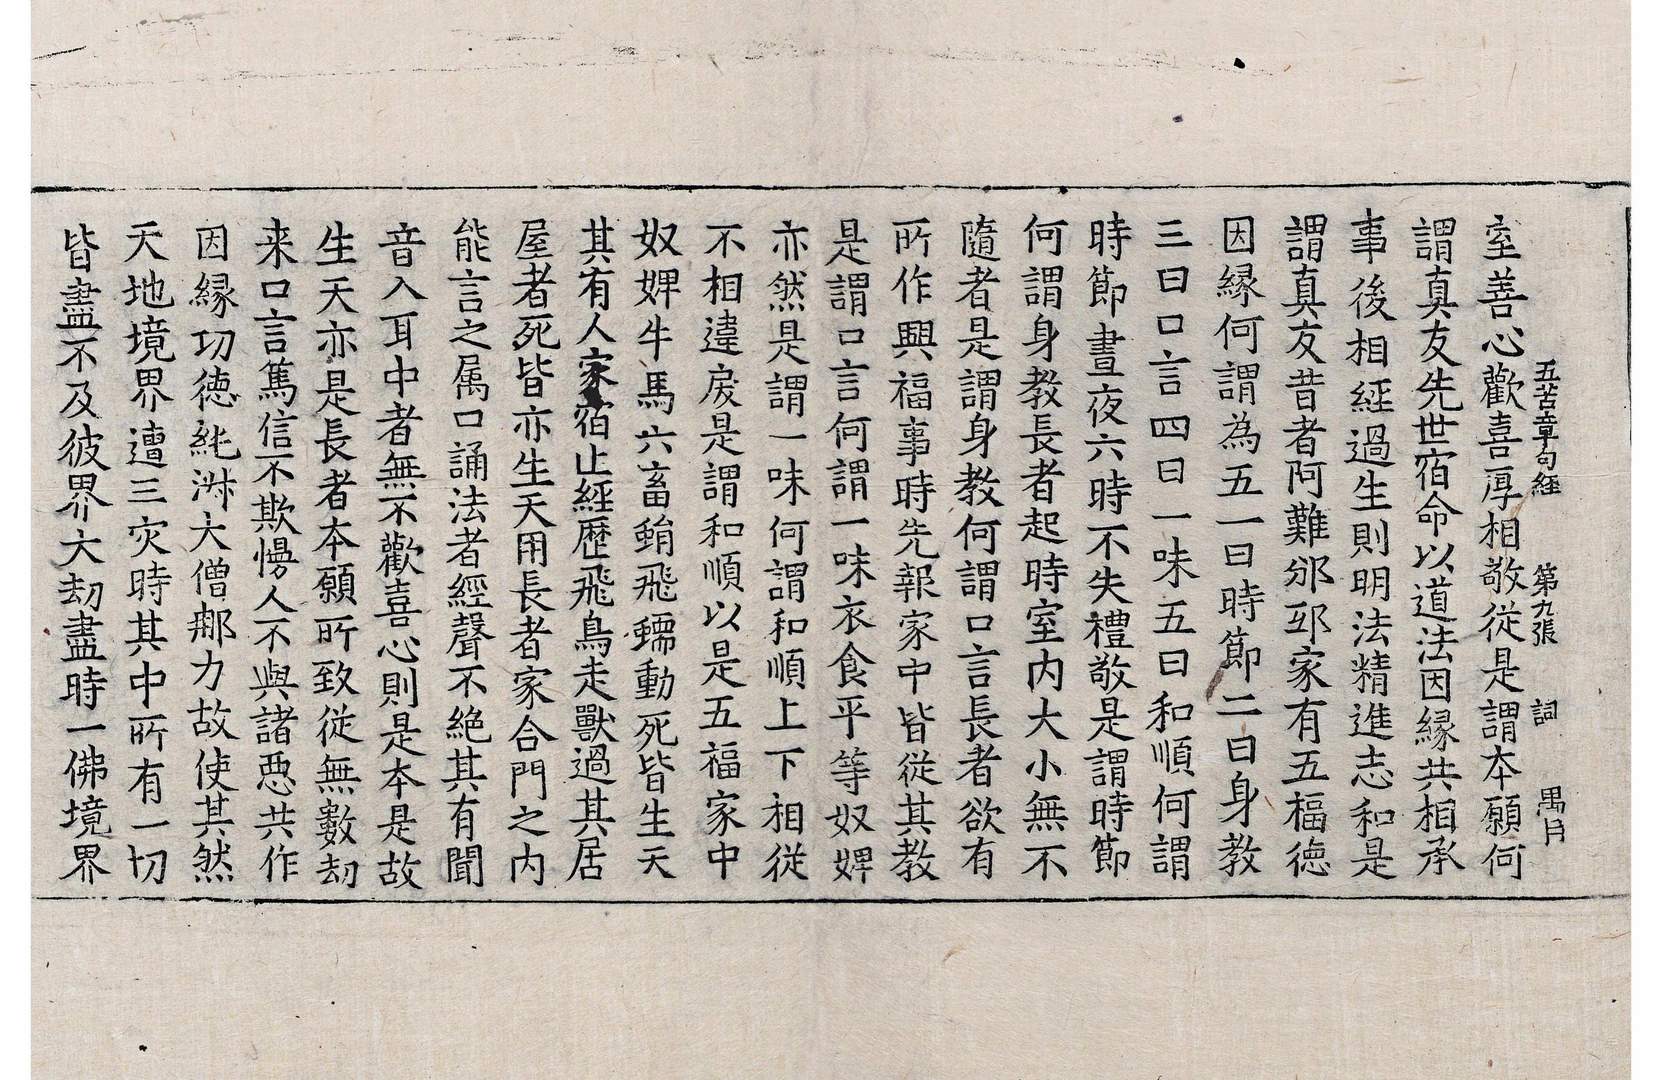 五苦章句經 第九張 詞 禺月
室善心歡喜厚相敬従是謂本願何
謂真友先世宿命以道法因縁共相承
事後相經過生則明法精進志和是
謂真友昔者阿難邠邳家有五福徳
因縁何謂為五一曰時節二曰身教
三曰口言四曰一味五曰和順何謂
時節晝夜六時不失禮敬是謂時節
何謂身教長者起時室内大小無不
隨者是謂身教何謂口言長者欲有
所作興福事時先報家中皆従其教
是謂口言何謂一味衣食平等奴婢
亦然是謂一味何謂和順上下相従
不相違戾是謂和順以是五福家中
奴婢牛馬六畜蜎飛蠕動死皆生天
其有人家宿止經歴飛鳥走獸過其居
屋者死皆亦生天用長者家合門之内
能言之属口誦法者經聲不絶其有聞
音入耳中者無不歡喜心則是本是故
生天亦是長者本願所致従無數劫
来口言篤信不欺慢人不與諸惡共作
因縁功徳純淑大僧那力故使其然
天地境界遭三灾時其中所有一切
皆盡不及彼界大劫盡時一佛境界